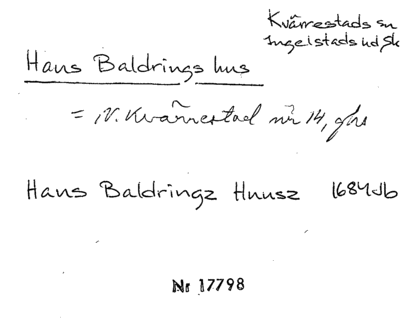 Kvärrestads sn
Ingelstads hd Sk
Hans Baldrings hus
= N. Kvärrestad nr 14, ghs
Hans Baldringz Huusz 1684 Jb
Nr 17798